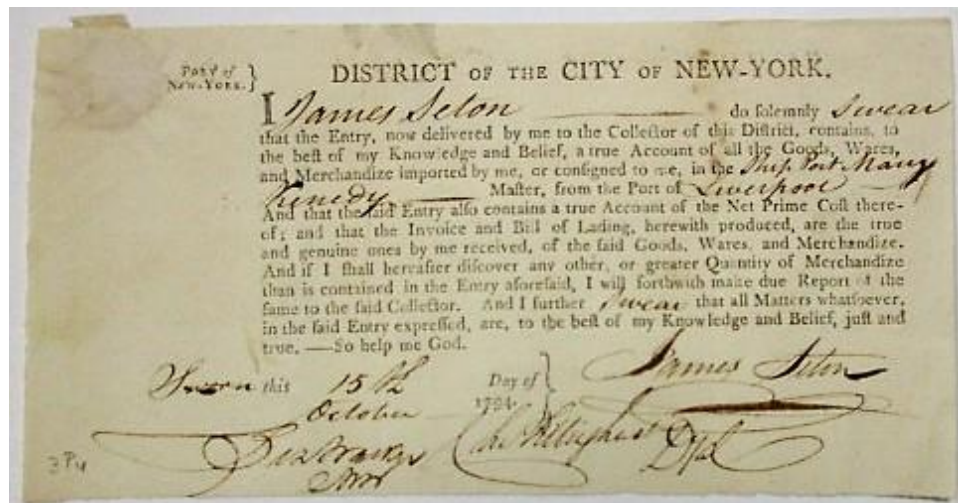 Port of New-York. }
DISTRICT OF THE CITY OF NEW-YORK.
I James Seton do solemnly Swear
that the Entry, now delivered by me to the Collector of this District, contains, to
the best of my Knowledge and Belief, a true Account of all the Goods, Wares,
and Merchandize imported by me, or consigned to me, in the Ship Port Mary
Kenedy Master, from the Port of Liverpool
And that the said Entry also contains a true Account of the Net Prime Cost there-
of; and that the Invoice and Bill of Lading, herewith produced, are the true
and genuine ones by me received, of the said Goods, Wares, and Merchandize.
And if I shall hereafter discover any other, or greater Quantity of Merchandize
than is contained in the Entry aforesaid, I will forthwith make due Report of the
same to the said Collector. And I further Swear that all Matters whatsoever,
in the said Entry expressed, are, to the best of my Knowledge and Belief, just and
true. —So help me God.
James Seton
Sworn this 15th Day of }
October 1794.